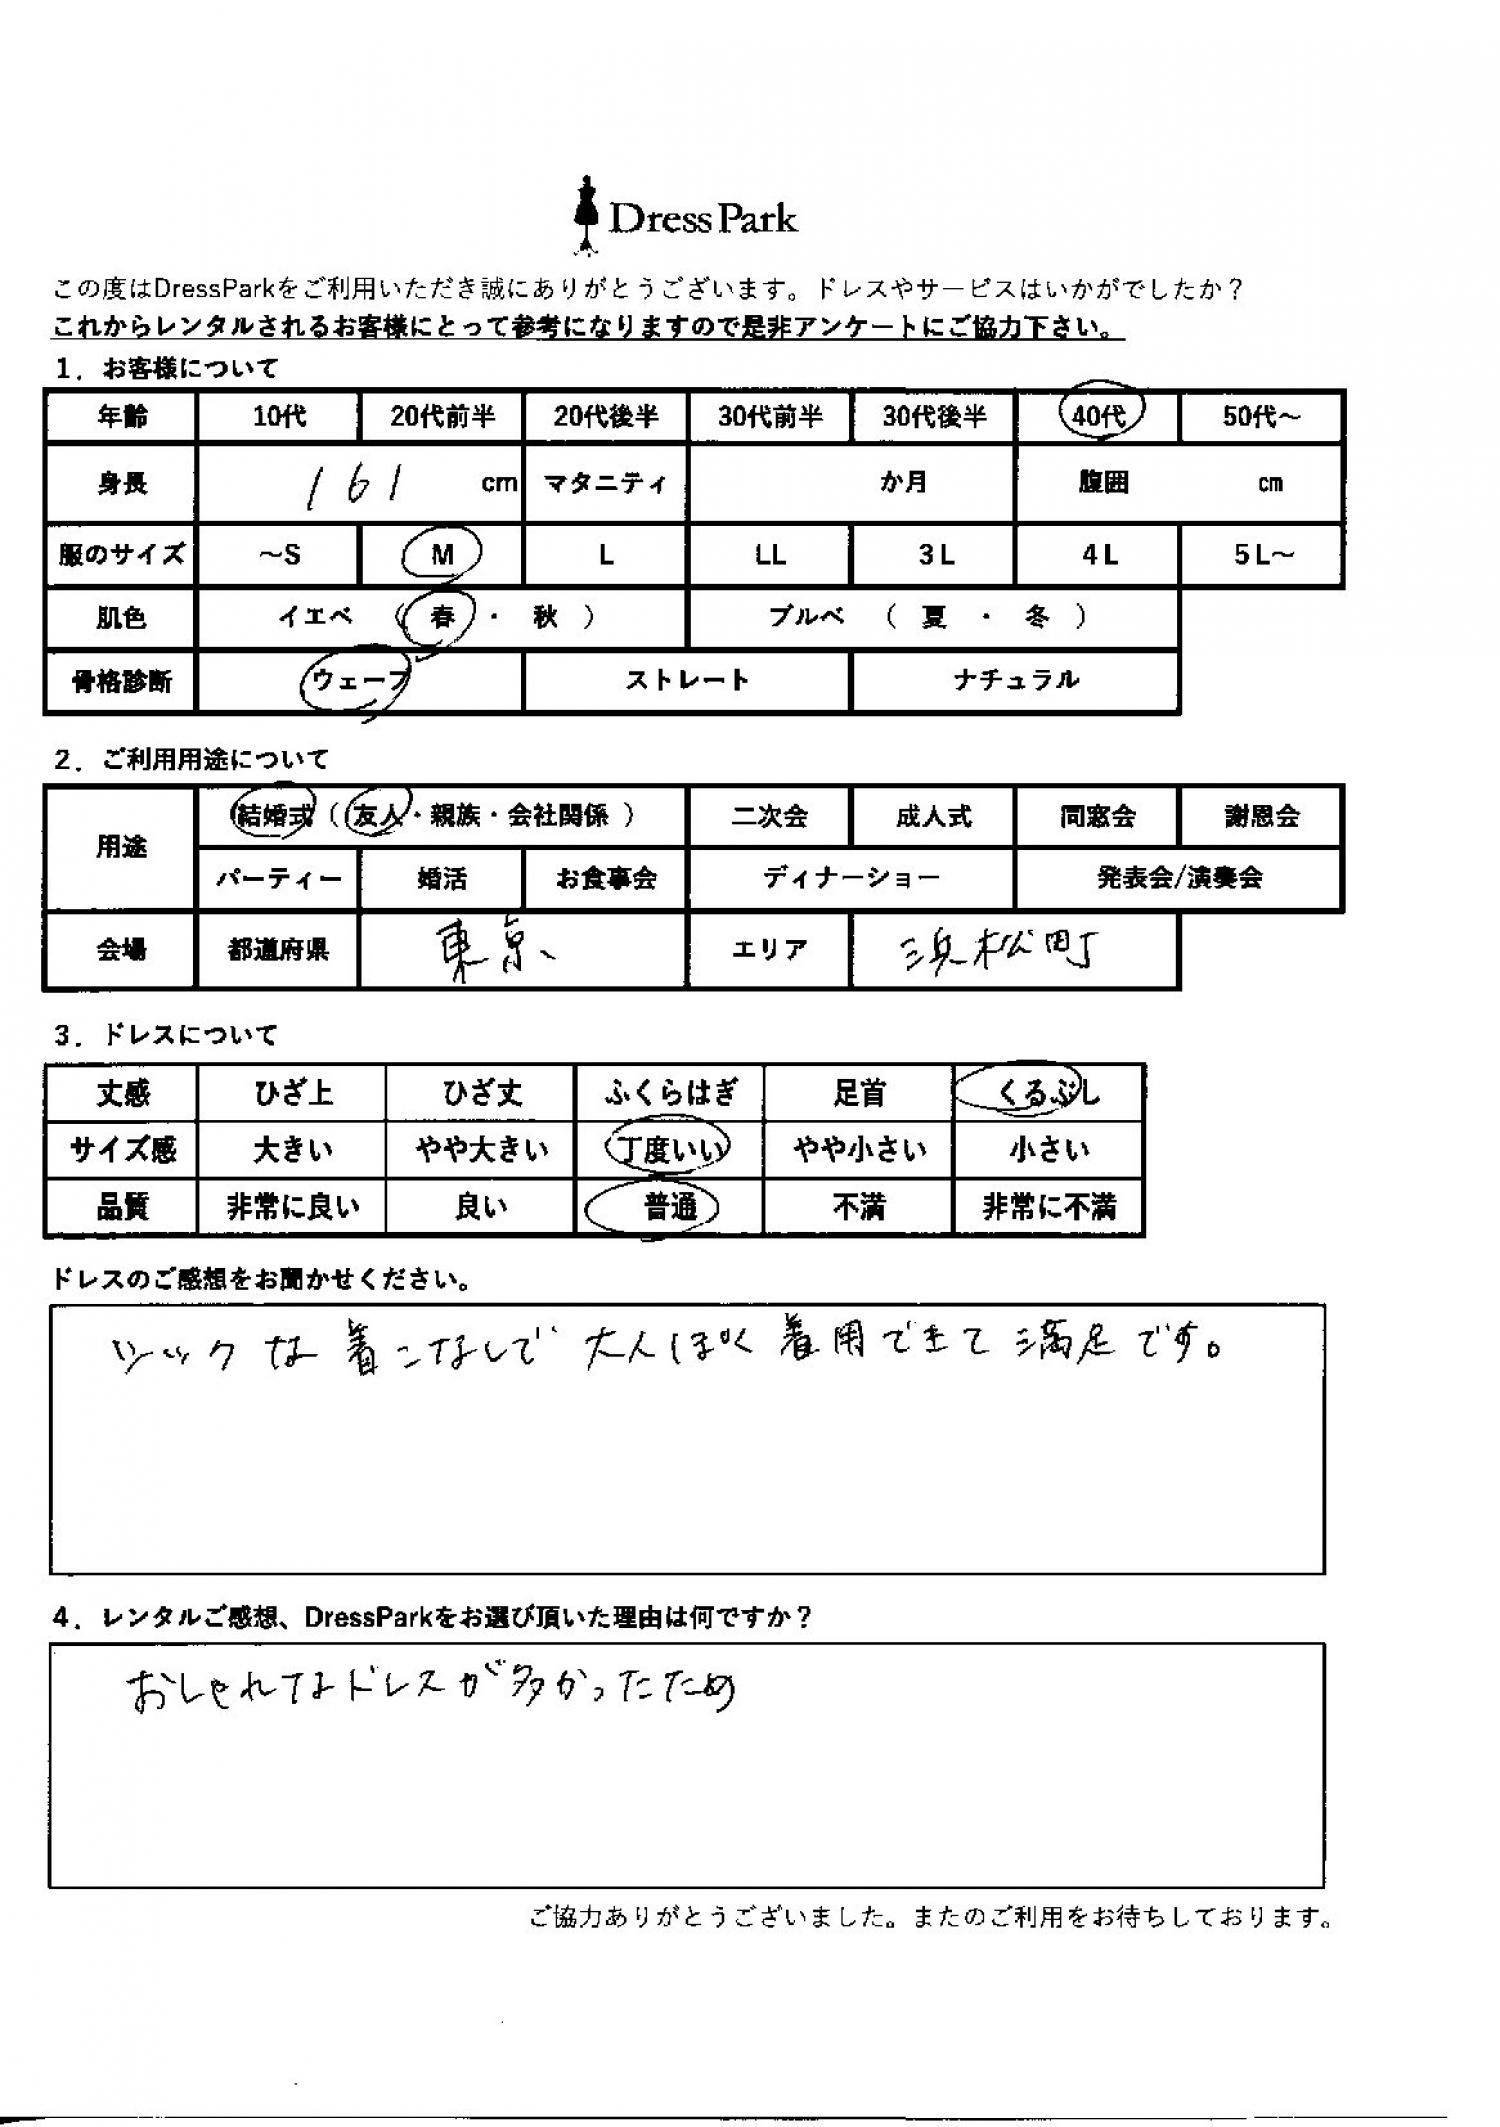 Dress Park
この度はDressParkをご利用いただき誠にありがとうございます。ドレスやサービスはいかがでしたか？
これからレンタルされるお客様にとって参考になりますので是非アンケートにご協力下さい。
1．お客様について
年齢 10代 20代前半 20代後半 30代前半 30代後半 40代 50代～
身長 161 cm マタニティ か月 腹囲 cm
服のサイズ ～S M L LL 3L 4L 5L～
肌色 イエベ （ 春 ・ 秋 ） ブルベ （ 夏 ・ 冬 ）
骨格診断 ウェーブ ストレート ナチュラル
2．ご利用用途について
用途 結婚式（友人・親族・会社関係） 二次会 成人式 同窓会 謝恩会
パーティー 婚活 お食事会 ディナーショー 発表会/演奏会
会場 都道府県 東京 エリア 浜松町
3．ドレスについて
丈感 ひざ上 ひざ丈 ふくらはぎ 足首 くるぶし
サイズ感 大きい やや大きい 丁度いい やや小さい 小さい
品質 非常に良い 良い 普通 不満 非常に不満
ドレスのご感想をお聞かせください。
シックな着こなしで大人ぽく着用できて満足です。
4．レンタルご感想、DressParkをお選び頂いた理由は何ですか？
おしゃれなドレスが多かったため
ご協力ありがとうございました。またのご利用をお待ちしております。